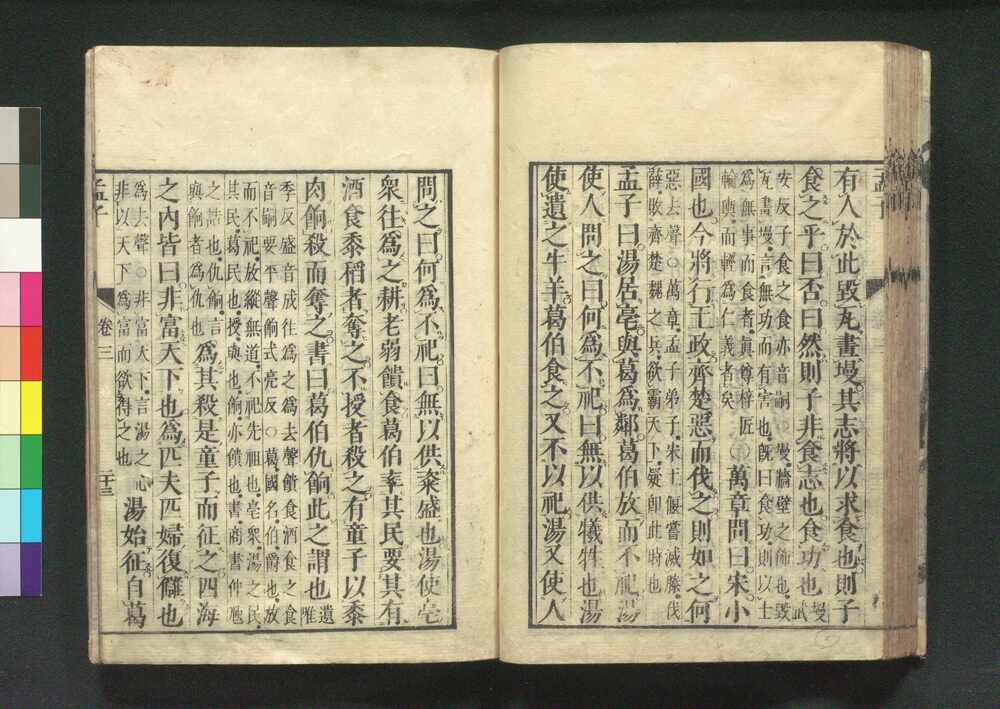 有人於此毀瓦畫墁其志將以求食也則子
食之乎曰否曰然則子非食志也食功也墁武
安反子食之食亦音嗣○墁牆壁之飾也毀
瓦畫墁言無功而有害也既曰食功則以士
為無事而食者真尊梓匠
輪輿而輕為仁義者矣○萬章問曰宋小
國也今將行王政齊楚惡而伐之則如之何
惡去聲○萬章孟子弟子宋王偃嘗滅滕伐
薛敗齊楚魏之兵欲霸天下疑卽此時也
孟子曰湯居亳與葛為鄰葛伯放而不祀湯
使人問之曰何為不祀曰無以供犧牲也湯
使遺之牛羊葛伯食之又不以祀湯又使人
問之曰何為不祀曰無以供粢盛也湯使亳
衆往為之耕老弱饋食葛伯率其民要其有
酒食黍稻者奪之不授者殺之有童子以黍
肉餉殺而奪之書曰葛伯仇餉此之謂也遺唯
季反盛音成往為之為去聲饋食酒食之食
音嗣要平聲餉式亮反○葛國名伯爵也放
而不祀放縱無道不祀先祖也亳衆湯之民
其民葛民也授與也餉亦饋也書商書仲虺
之誥也仇餉言
與餉者為仇也為其殺是童子而征之四海
之内皆曰非富天下也為匹夫匹婦復讎也
為去聲○非富天下言湯之心
非以天下為富而欲得之也湯始征自葛
孟子
卷三
二十三